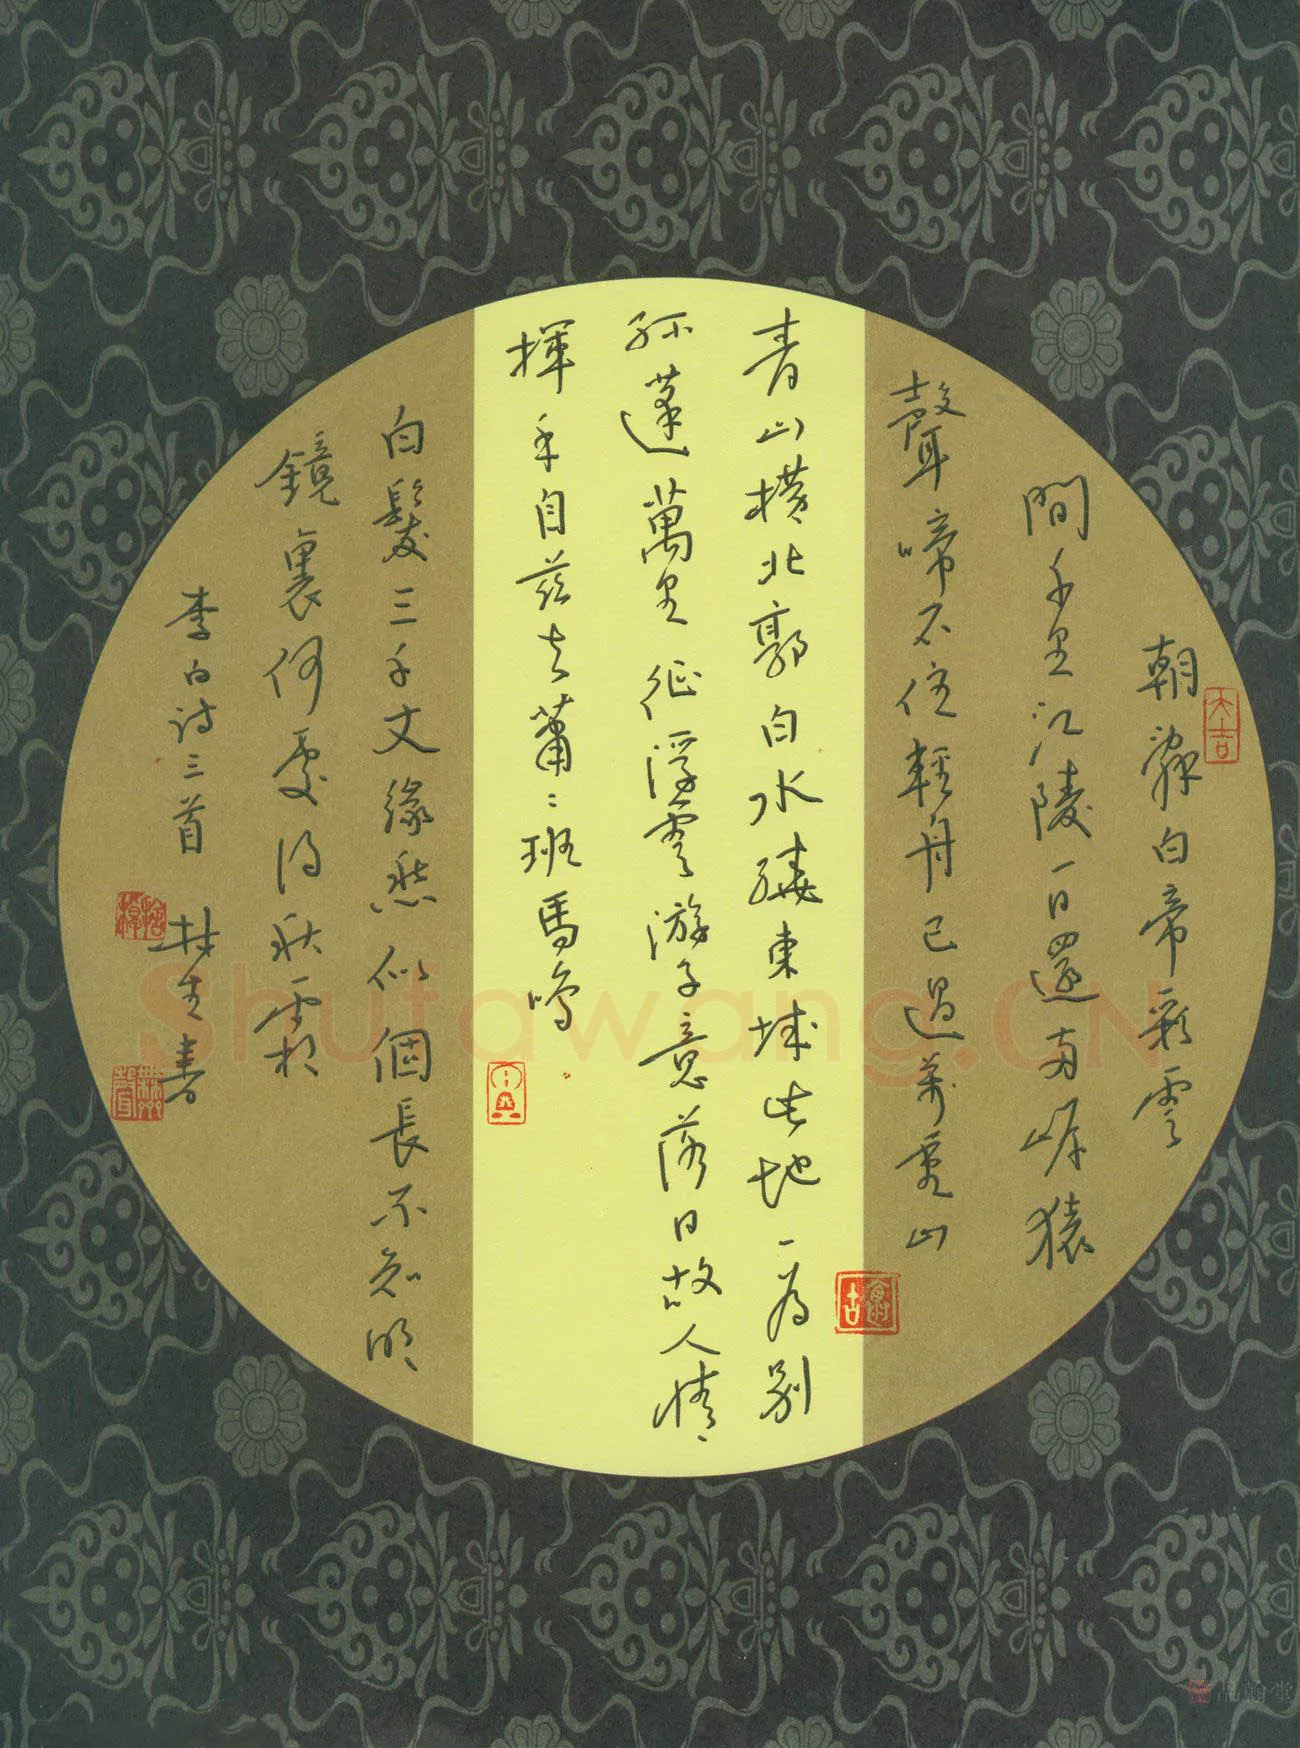 朝辭白帝彩雲
間千里江陵一日還兩岸猿
聲啼不住輕舟已過萬重山
青山橫北郭白水繞東城此地一為別
孤蓬萬里征浮雲游子意落日故人情
揮手自茲去蕭〻班馬鳴
白髮三千丈緣愁似個長不知明
鏡裏何處得秋霜
李白詩三首 林生書
大吉
Shufawang.CN